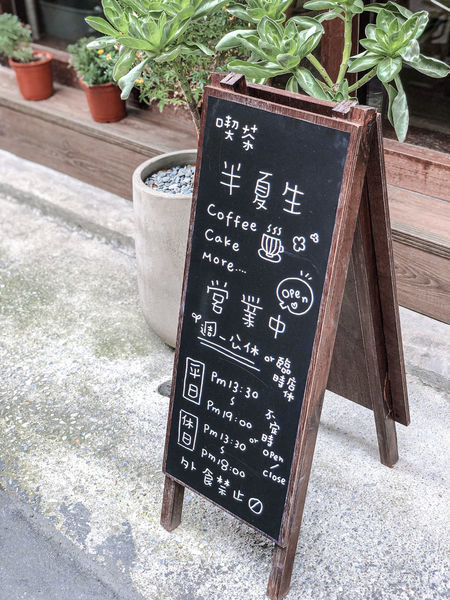 喫茶
半夏生
Coffee
Cake
More....
Open
営業中
週一公休 or 臨時店休
平日 Pm 13:30
~
Pm 19:00
休日 Pm 13:30
~
Pm 18:00
or 不定時 open / close
外食禁止